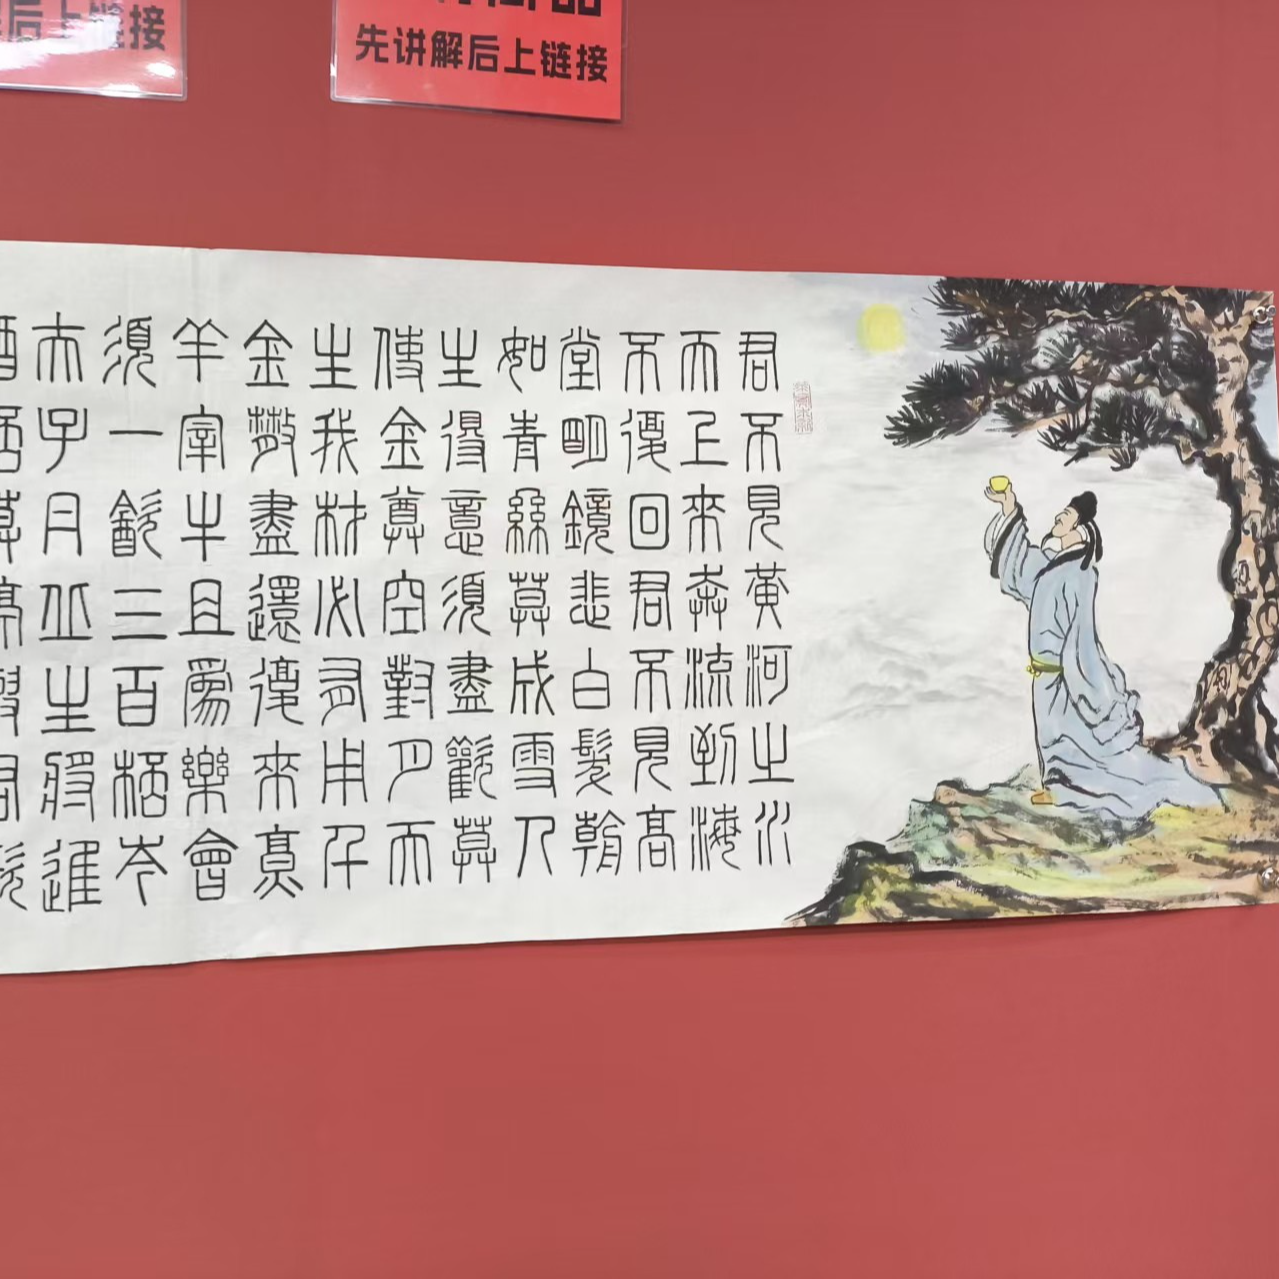 后上链接
先讲解后上链接
君不見黃河之水
天上來奔流到海
不復回君不見高
堂明鏡悲白髮朝
如青絲莫成雪人
生得意須盡歡莫
使金尊空對月天
生我材必有用千
金散盡還復來烹
羊宰牛且為樂會
須一飲三百桮岑
夫子丹丘生將進
酒桮莫停與君歌